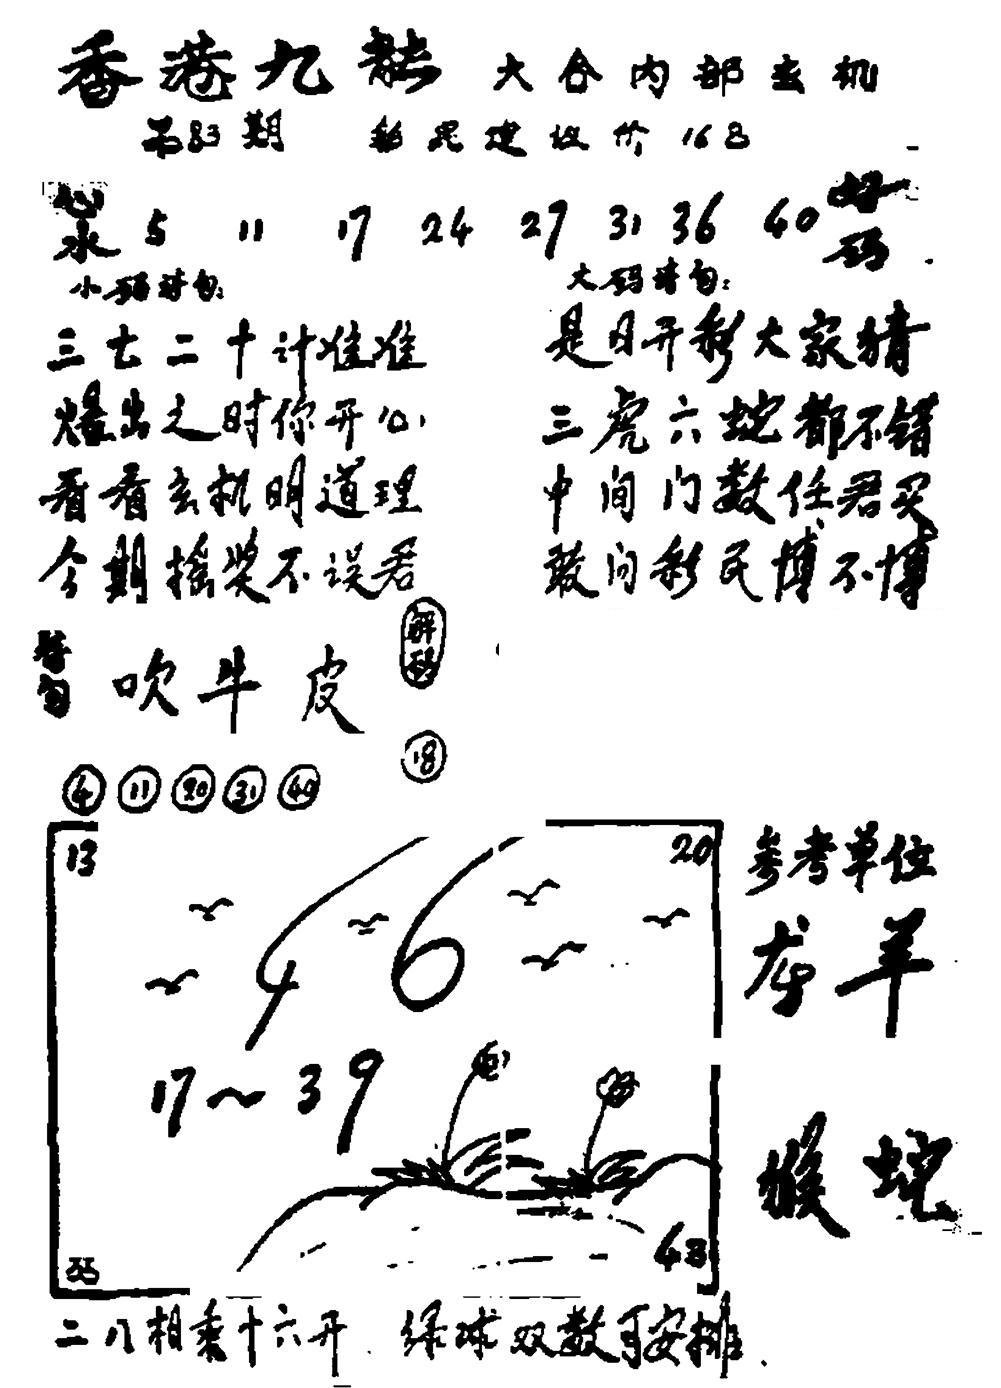 香港九龙 大合内部玄机
第83期 彩民建议价168
心水 5 11 17 24 27 31 36 40 好码
小码诗句:
三七二十计准准
爆出之时你开心
看看玄机明道理
今期摇奖不误君
大码诗句:
是日开彩大家猜
三虎六蛇都不错
中间门数任君买
敢问彩民博不博
吹牛皮
解码
18
4 11 20 31 40
13 20
46
17~39
48
参考单位
龙羊
猴蛇
二八相乘十六开 绿球双数可安排